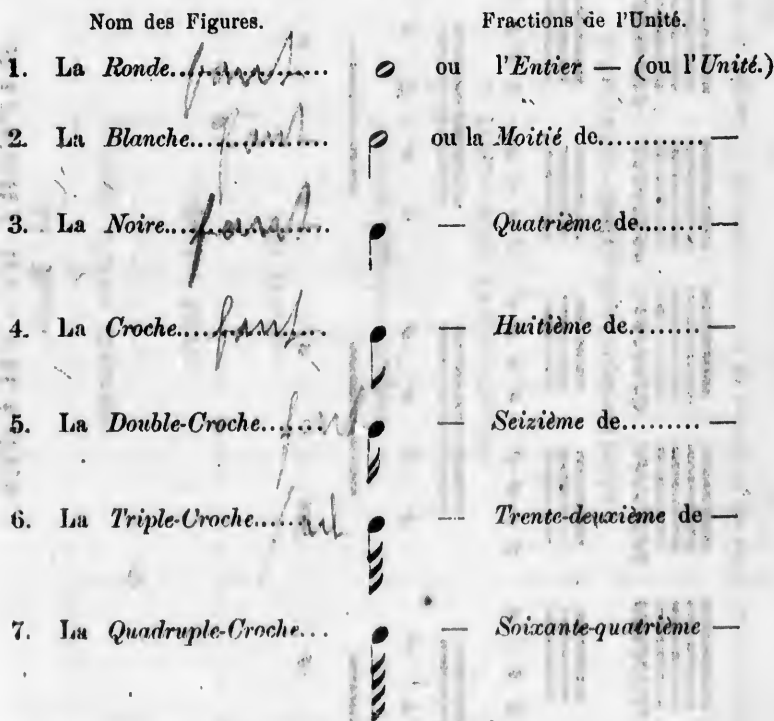 Nom des Figures. Fractions de l'Unité.
1. La Ronde.................. ou l'Entier — (ou l'Unité.)
2. La Blanche................ ou la Moitié de............ —
3. La Noire.................. — Quatrième de........ —
4. La Croche................. — Huitième de........ —
5. La Double-Croche...... — Seizième de......... —
6. La Triple-Croche...... — Trente-deuxième de —
7. La Quadruple-Croche... — Soixante-quatrième —